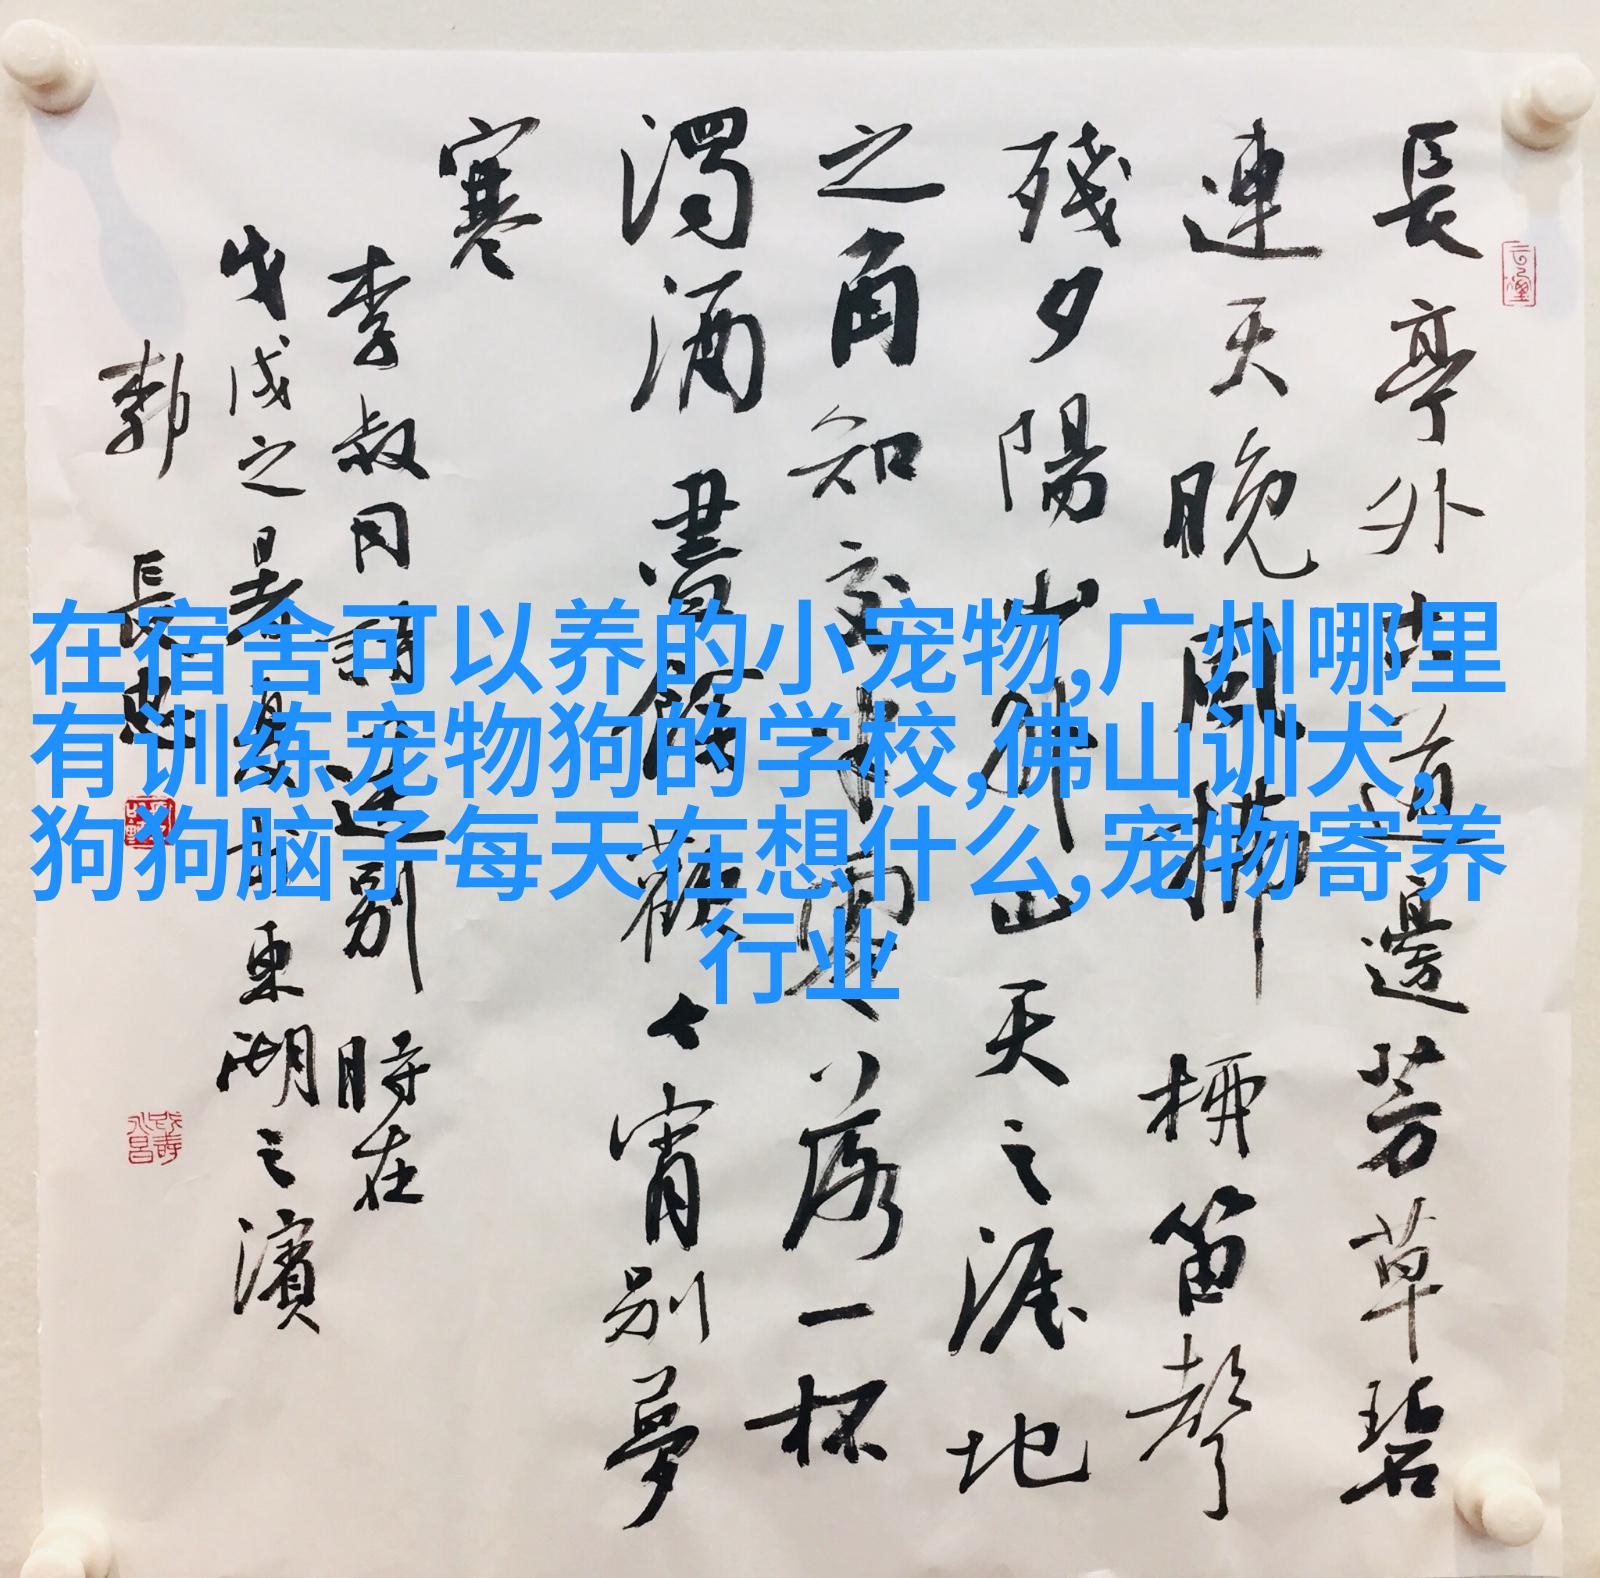 長亭外古道邊芳草碧
連天晚風拂柳笛聲
殘夕陽山外山天之涯地
之角知交半零落一杯
濁酒盡餘歡今宵別夢
寒
李叔同詩送別 時在
戊戌之暑東湖之濱
長忠
在宿舍可以养的小宠物,广州哪里
有训练宠物狗的学校,佛山训犬,
狗狗脑子每天在想什么,宠物寄养
行业